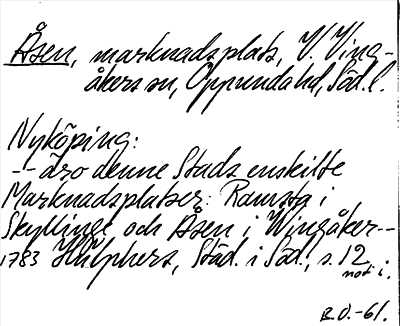 Åsen, marknadsplats, V. Ving-
åkers sn, Oppunda hd, Söd. l.
Nyköping:
-- äro denne Stads enskilte
Marknadsplatser: Ramsta i
Skyllinge och Åsen i Wingåker--
1783 Hülphers, Städ. i Söd., s. 12
not i.
B.O.-61.